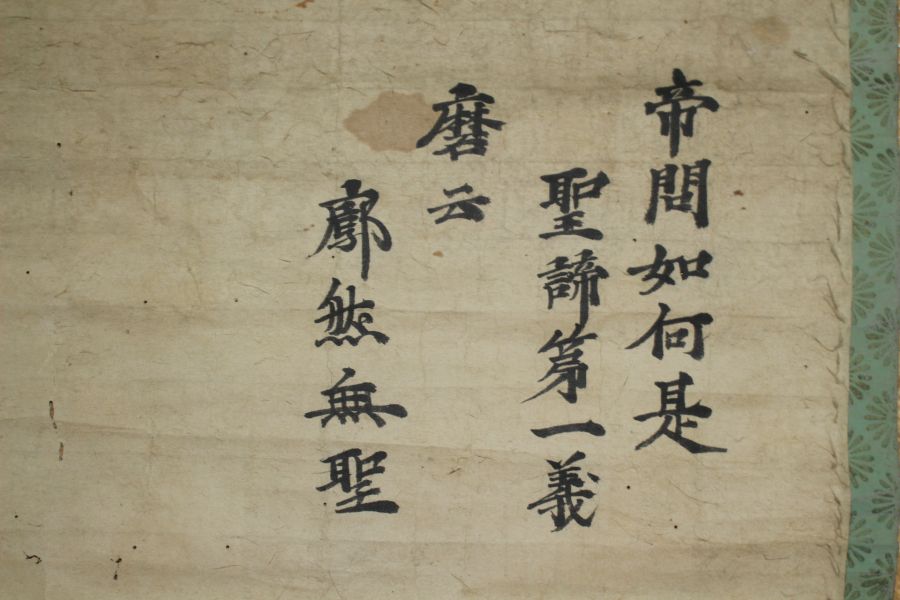 帝問如何是
聖諦第一義
磨云
廓然無聖